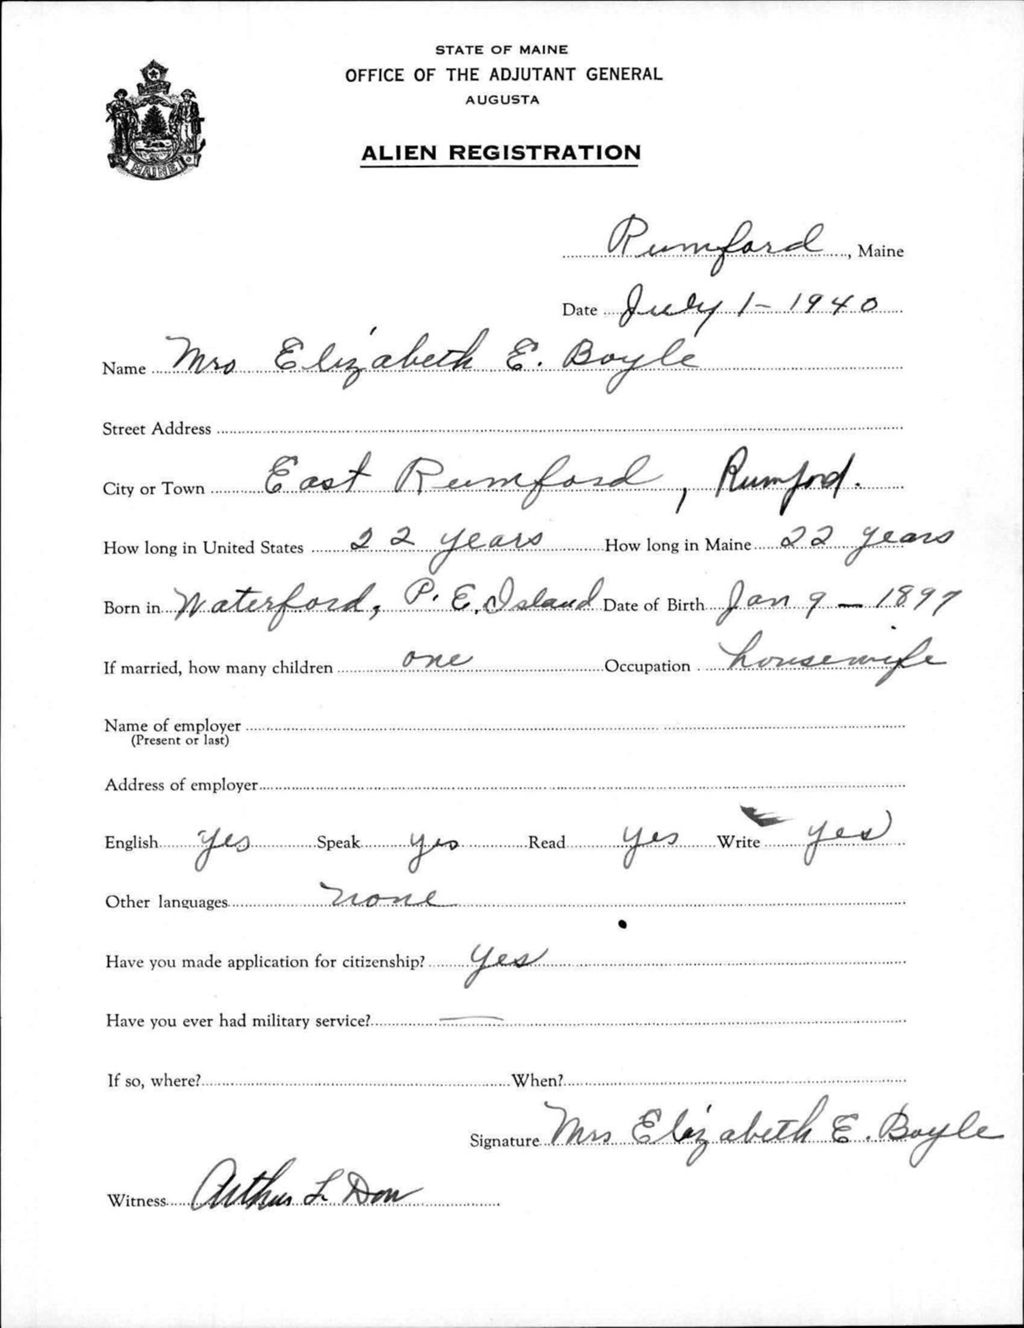 STATE OF MAINE
OFFICE OF THE ADJUTANT GENERAL
AUGUSTA
ALIEN REGISTRATION
MAINE
Rumford, Maine
Date July 1 - 1940
Name Mrs Elizabeth E. Boyle
Street Address
City or Town East Rumford, Rumford.
How long in United States 22 years How long in Maine 22 years
Born in Waterford, P. E. Island Date of Birth Jan 9 - 1897
If married, how many children one Occupation housewife
Name of employer
(Present or last)
Address of employer
English Yes Speak yes Read yes Write yes
Other languages none
Have you made application for citizenship? Yes
Have you ever had military service? —
If so, where? When?
Signature Mrs Elizabeth E. Boyle
Witness Arthur L Dow